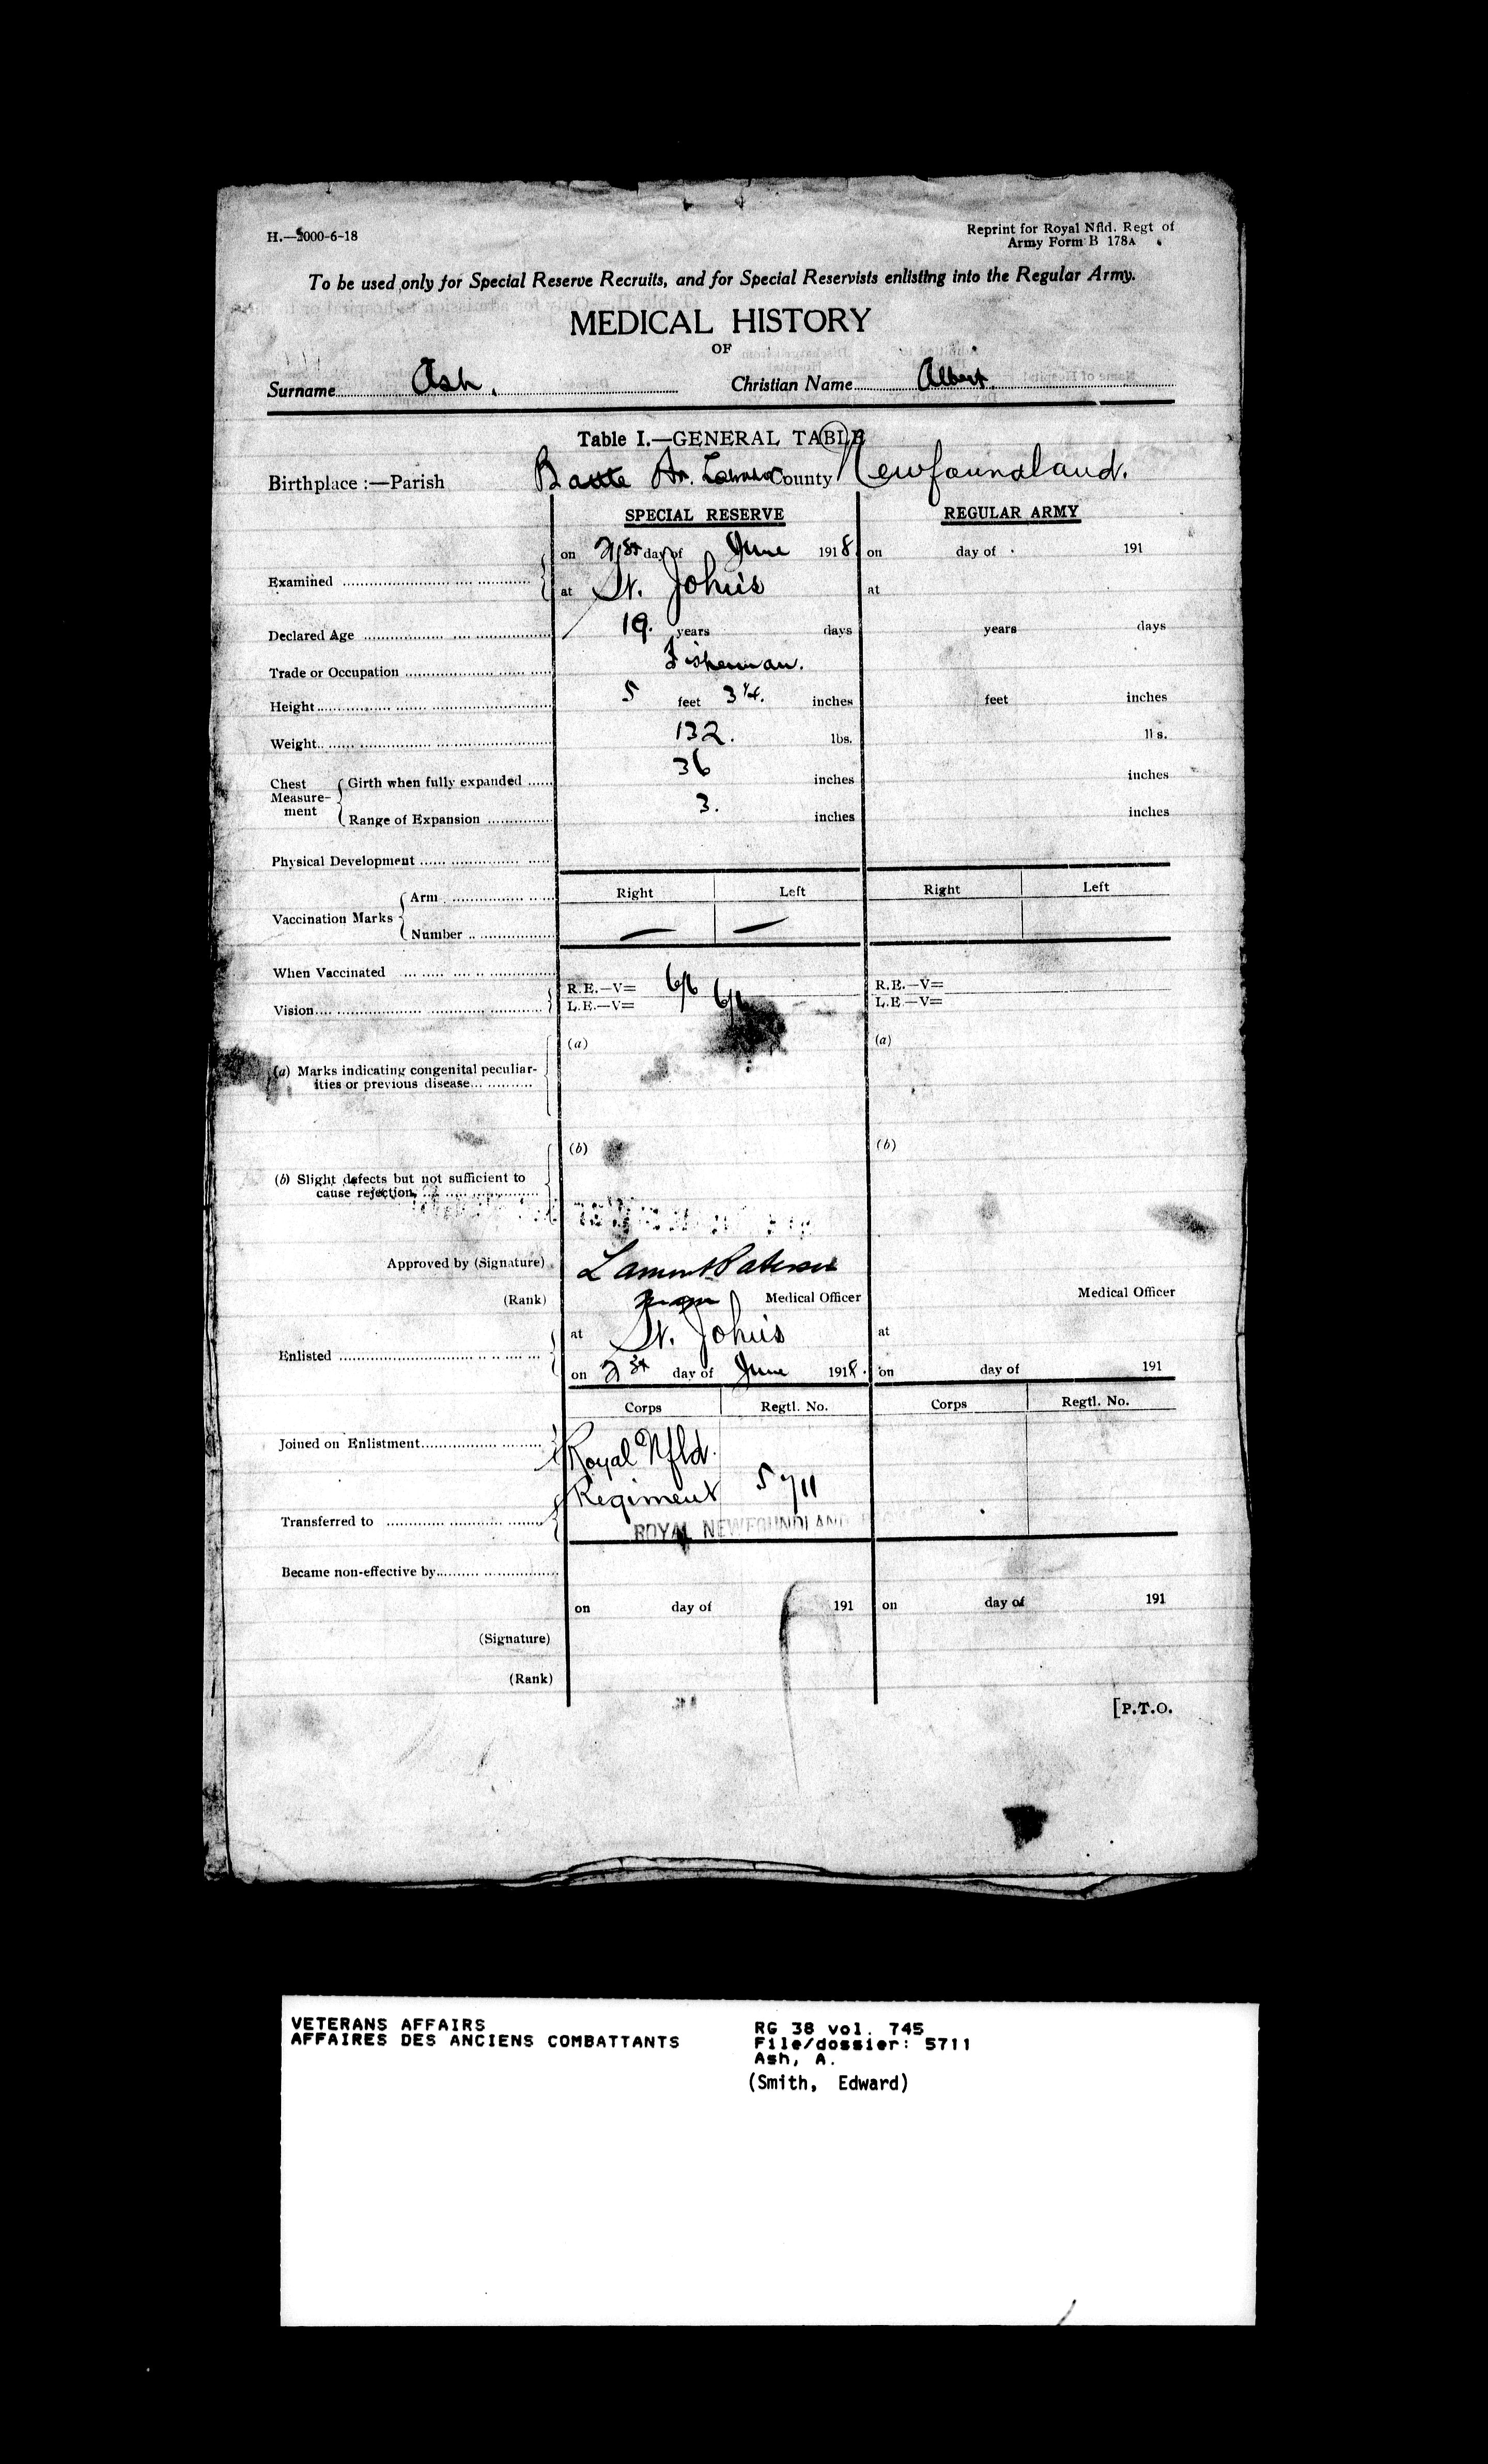 H.—5000-6-18
Reprint for Royal Nfld. Regt of
Army Form B 178A
To be used only for Special Reserve Recruits, and for Special Reservists enlisting into the Regular Army.
MEDICAL HISTORY
OF
Surname Ash. Christian Name Albert.
Table I.—GENERAL TABLE
Birthplace :—Parish County Newfoundland.
SPECIAL RESERVE REGULAR ARMY
on 21st day of June 1918 on day of 191
Examined
at St. John's at
Declared Age 19. years days years days
Trade or Occupation Fisherman.
Height 5 feet 3 1/4. inches feet inches
Weight 132. lbs. lbs.
Chest Measure-ment Girth when fully expanded 36 inches inches
Range of Expansion 3. inches inches
Physical Development
Right Left Right Left
Arm
Vaccination Marks
Number — —
When Vaccinated
R.E.—V= 6/6 R.E.—V=
Vision L.E.—V= 6/6 L.E.—V=
(a) (a)
(a) Marks indicating congenital peculiar-
ities or previous disease
(b) (b)
(b) Slight defects but not sufficient to
cause rejection
Approved by (Signature) Lamont Paterson
(Rank) Medical Officer Medical Officer
at St. John's at
Enlisted
on 21st day of June 1918. on day of 191
Corps Regtl. No. Corps Regtl. No.
Joined on Enlistment Royal Nfld.
Regiment 5711
Transferred to
ROYAL NEWFOUNDLAND
Became non-effective by
on day of 191 on day of 191
(Signature)
(Rank)
[P.T.O.
VETERANS AFFAIRS
AFFAIRES DES ANCIENS COMBATTANTS
RG 38 vol. 745
File/dossier: 5711
Ash, A.
(Smith, Edward)